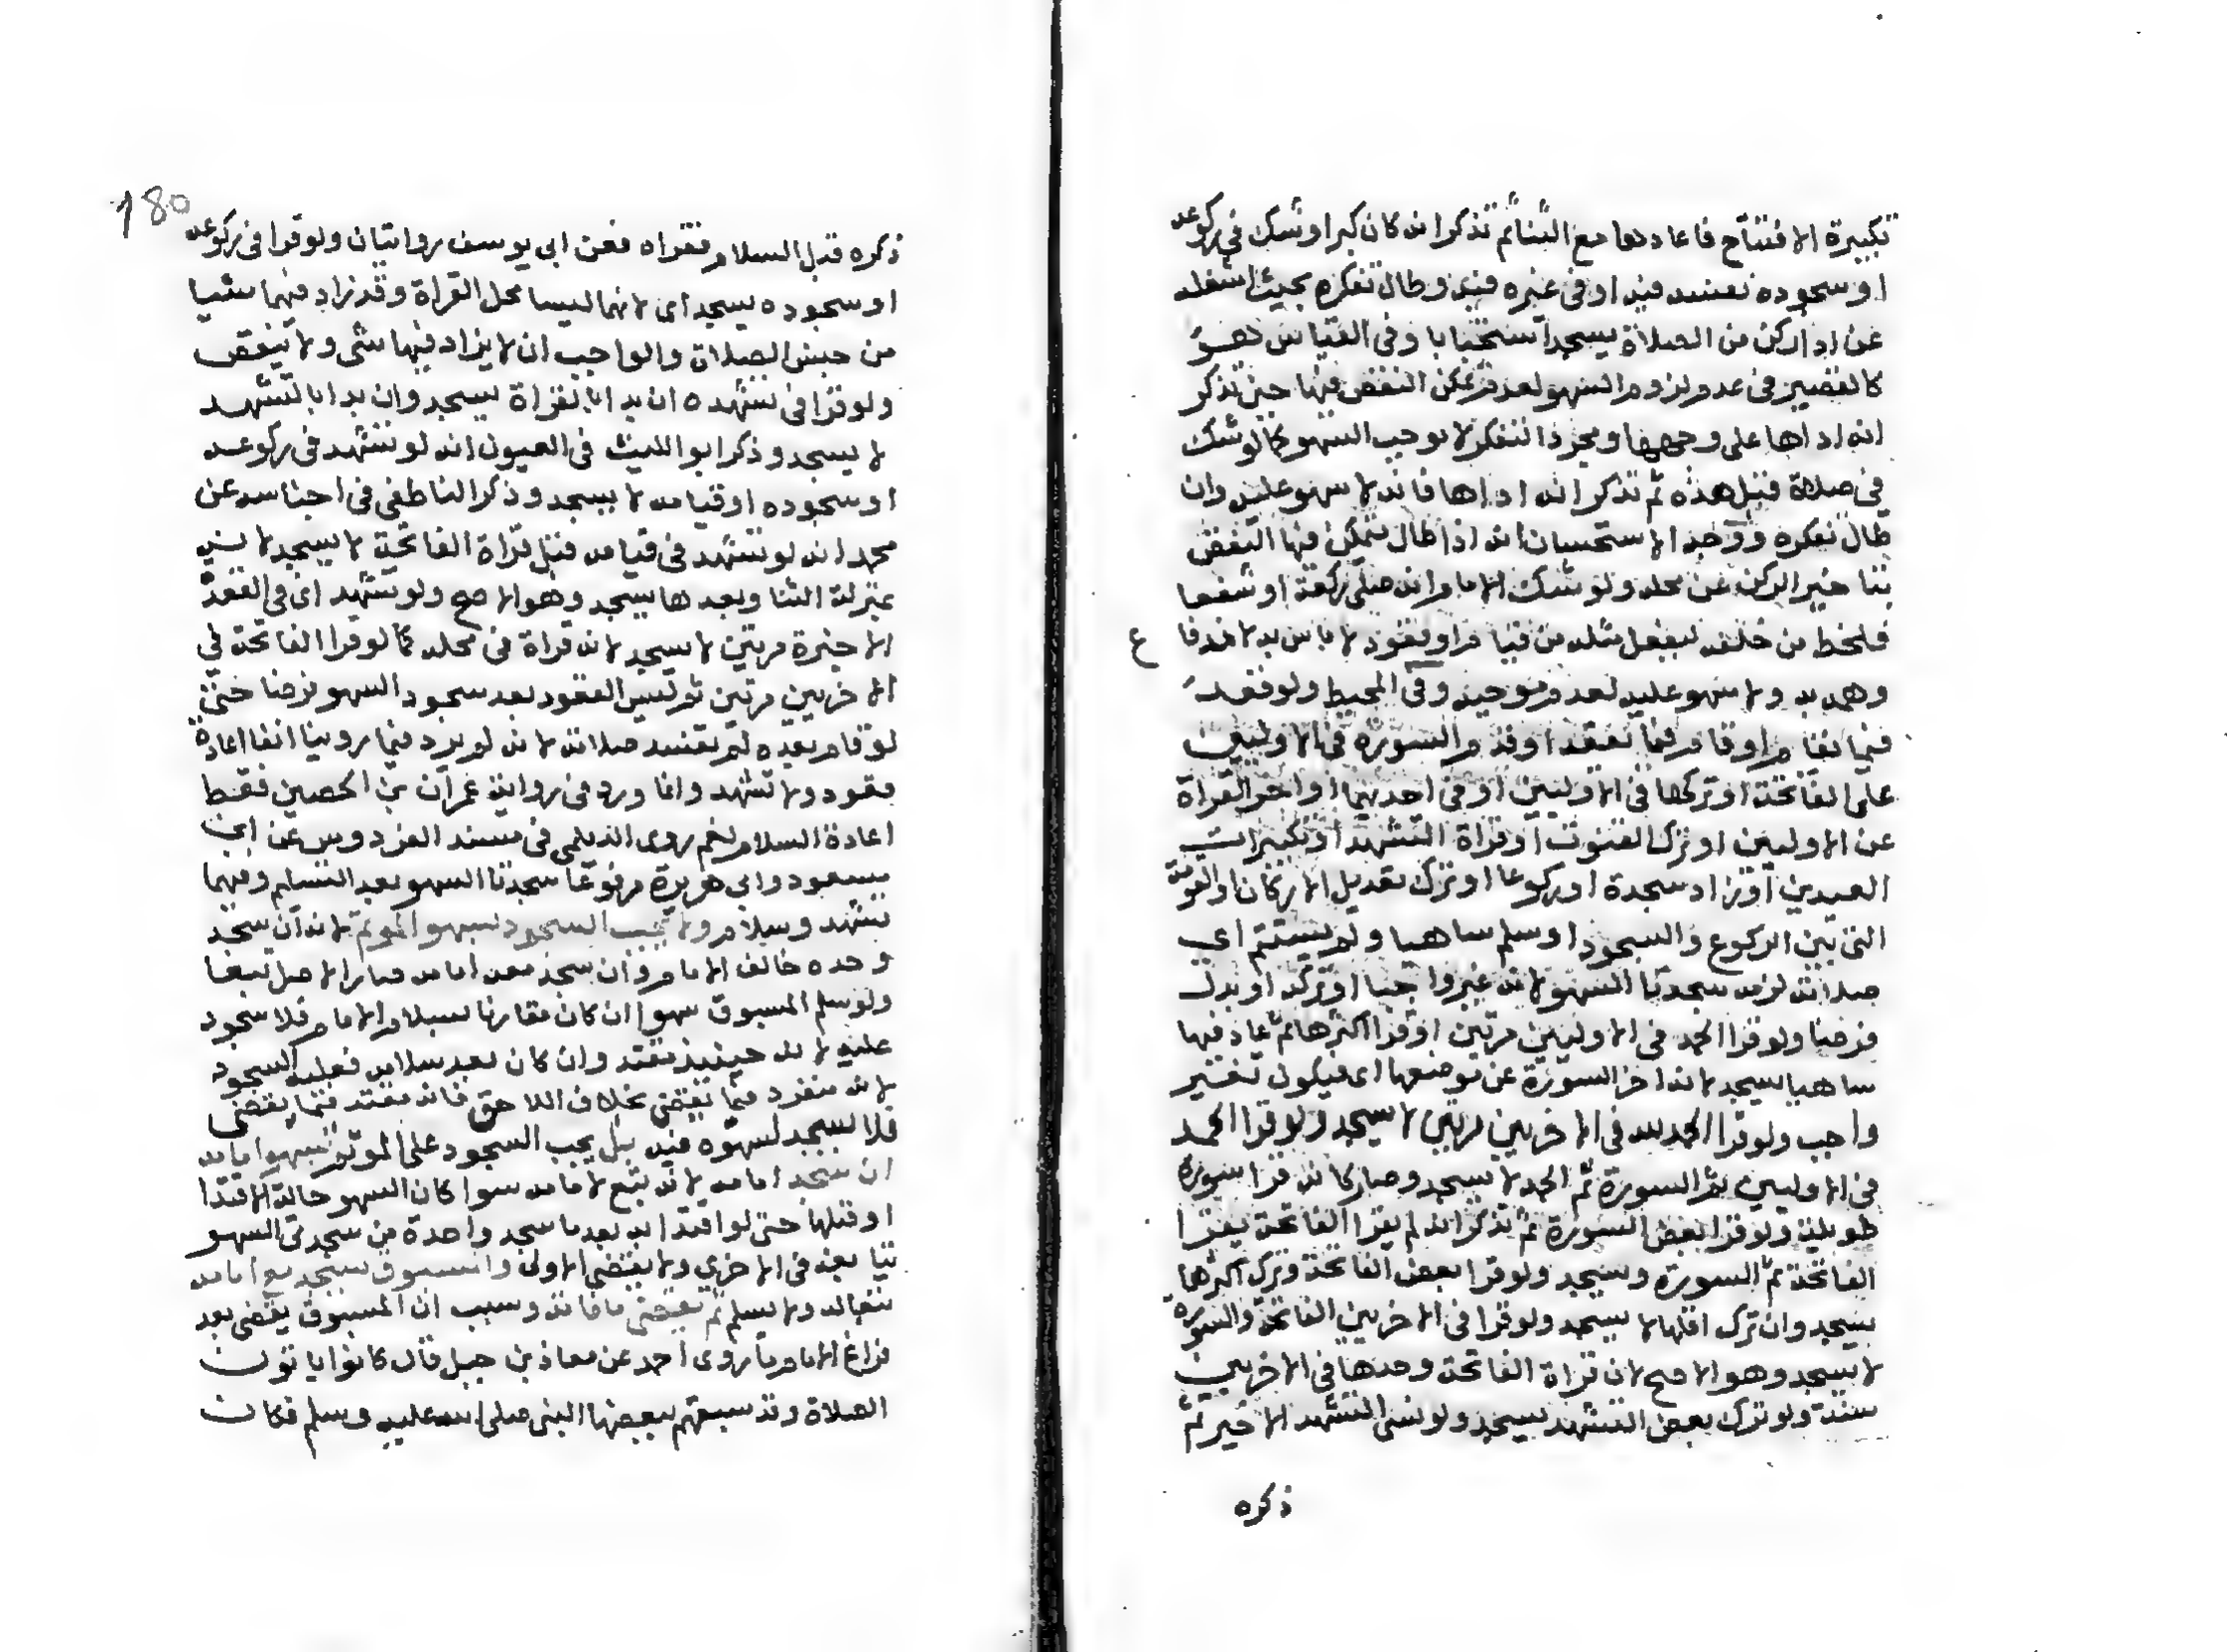 تكبيرة الافتتاح فاعادها مع الثنا ثم تذكر انه كان كبر او شك في ركوعه
او سجوده نفسه فيه او في غيره فيه وطال تفكره بحيث اشغله
عن اداركن من الصلاة يسجد استحبابا وفي القياس هو
في عدم لزوم السهو لعدم تمكن النقص فيها حين تذكر
انه اداها على وجهها ومجرد التفكر لا يوجب السهو كما لو شك
في صلاة قبل هذه ثم تذكر انه اداها فانه لا سهو عليه وان
طال تفكره ووجه الاستحسان انه اذا طال تمكن فيها النقص
بتاخير الركن عن محله ولو شك الامام انه صلى ركعة او شفعا
فلحظ من خلفه ليفعل مثله من قيام او قعود لا باس به
ع
به ولا سهو عليه لعدم وفي المحيط ولو قعد
فيما يقام او قام فيما يقعد او قدم السورة في الاوليين
على الفاتحة او تركها في الاوليين او في احديهما او اخر القراة
عن الاوليين او ترك القنوت او قراة التشهد او تكبيرات
العيدين او زاد سجدة او ركوعا او ترك تعديل الاركان او القومة
التي بين الركوع والسجود او سلم ساهيا ولم يستتم اي
صلاته لزمه سجدتا السهو لانه غير واجبا او تركه او بدل
فرضا ولو قرا الحمد في الاوليين مرتين او قرا اكثرها ثم عاد فيها
ساهيا يسجد لانه اخر السورة عن موضعها اي فيكون تغيير
واجب ولو قرا الحمد لله في الاخريين مرتين لا يسجد ولو قرا الحمد
في الاوليين ثم السورة ثم الحمد لا يسجد وصار كانه قرا سورة
طويلة ولو قرا بعض السورة ثم تذكر انه لم يقرا الفاتحة يقرا
الفاتحة ثم السورة وسجد ولو قرا بعض الفاتحة وترك اكثرها
يسجد وان ترك اقلها لا يسجد ولو قرا في الاخريين الفاتحة والسورة
لا يسجد وهو الاصح لان قراة الفاتحة وحدها في الاخريين
سنة ولو ترك بعض التشهد يسجد ولو نسى التشهد الاخير ثم
ذكره
180
ذكره قبل السلام فقراه فعن ابي يوسف روايتان ولو قرا في ركوعه
او سجوده يسجد اي لانهما ليسا محل القراة وقد زاد فيهما شيا
من جنس الصلاة والواجب ان لا يزاد فيها شي ولا ينقص
ولو قرا في تشهده ان بدا بالقراة يسجد وان بدا بالتشهد
لا يسجد وذكر ابو الليث في العيون انه لو تشهد في ركوعه
او سجوده او قيامه لا يسجد وذكر الناطفي في اجناسه عن
محمد انه لو تشهد في قيامه قبل قراة الفاتحة لا يسجد لانه
بمنزلة الثنا وبعدها يسجد وهو الاصح ولو تشهد اي في القعدة
الاخيرة مرتين لا يسجد لانه قراة في محله كما لو قرا الفاتحة في
الاخريين مرتين ثم ليس القعود بعد سجود السهو فرضا حتى
لو قام بعده لم تفسد صلاته لانه لم يرد فيما روينا انفا اعادة
قعود ولا تشهد وانما ورد في رواية عمران بن الحصين فقط
اعادة السلام نعم روى الديلمي في مسند الفردوس عن ابن
مسعود وابي هريرة مرفوعا سجدتا السهو بعد التسليم وفيهما
تشهد وسلام ولا يجب السجود لسهو الموتم لانه ان سجد
وحده خالف الامام وان سجد معه امامه صار الاصل تبعا
ولو سلم المسبوق سهوا ان كان مقارنا لسلام الامام فلا سجود
عليه لانه حينيذ مقتد وان كان بعد سلامه فعليه السجود
لانه منفرد فيما يقضى بخلاف اللاحق فانه مقتد فيما يقضى
فلا يسجد لسهوه فيه بل يجب السجود على الموتم لسهو امامه
ان سجد امامه لانه تبع لامامه سوا كان السهو حالة الاقتدا
او قبلها حتى لو اقتدا به بعد ما سجد واحدة من سجدتي السهو
تابعه في الاخري ولا يقضي الاولى والمسبوق يسجد مع امامه
ولا يسلم ثم يقضى ما فاته وسبب ان المسبوق يقضى بعد
فراغ الامام ما روى احمد عن معاذ بن جبل قال كانوا ياتون
الصلاة وقد سبقهم ببعضها النبي صلى الله عليه وسلم فكان